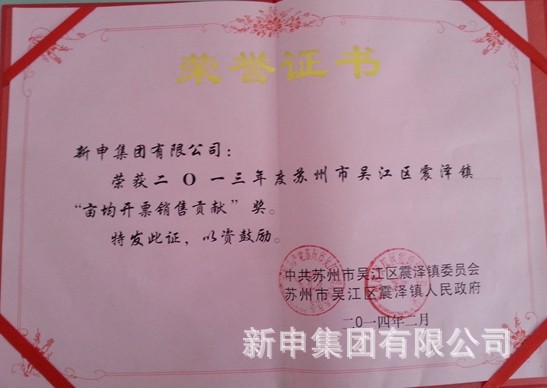 荣誉证书
新申集团有限公司：
荣获二〇一三年度苏州市吴江区震泽镇
“亩均开票销售贡献”奖。
特发此证，以资鼓励。
中共苏州市吴江区震泽镇委员会
苏州市吴江区震泽镇人民政府
二〇一四年二月
新申集团有限公司